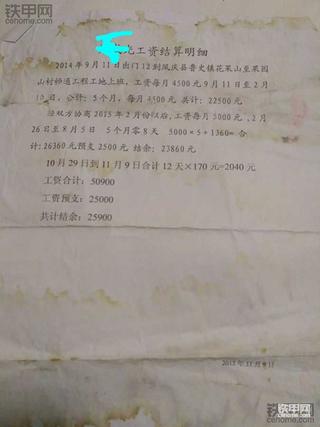 铁甲网
cehome.com
工资结算明细
2014年9月11日出门12到凤庆县鲁史镇花果山至果园
山村修通工程工地上班，工资每月4500元，9月11日至2月
10日，合计：5个月，每月4500元 共计：22500元
经双方协商2015年2月份以后，工资每月5000元，2月
26日至8月5日 5个月零8天 5000×5+1360= 合
计：26360元预支2500元 结余：23860元
10月29日到11月9日合计12天×170元=2040元
工资合计：50900
工资预支：25000
共计结余：25900
铁甲网
cehome.com